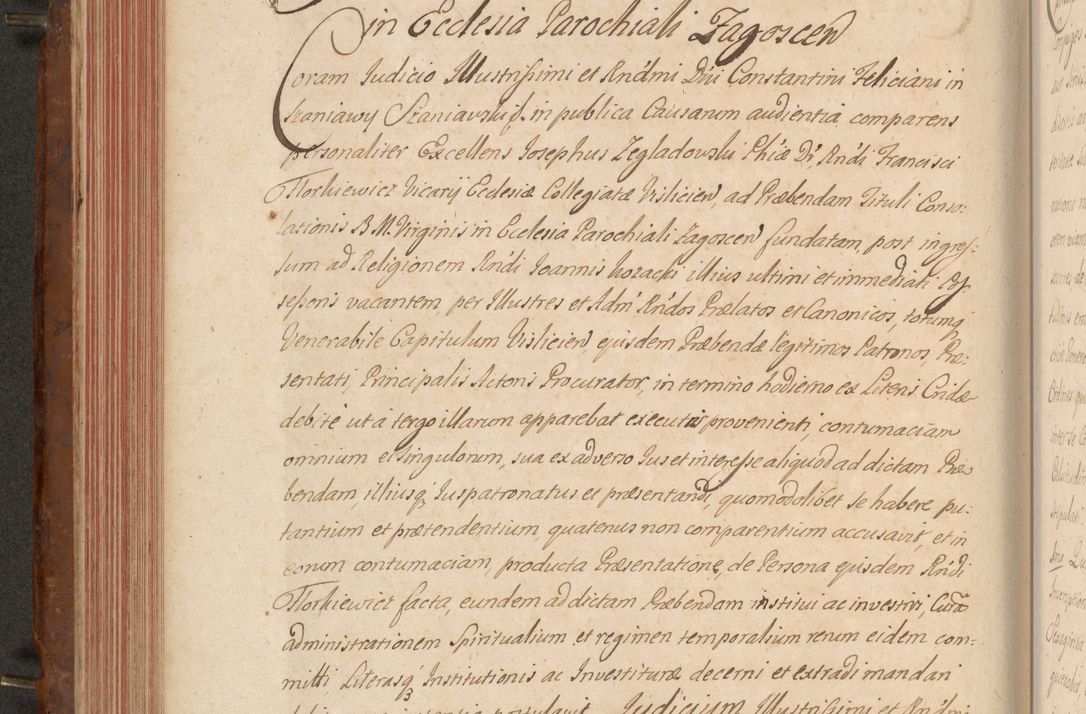 in Ecclesia Parochiali Zagoscen
Coram Judicio Illustrissimi et Rndmi Dni Constantini Feliciani in
Szaniawy Szaniawski &. in publica Causarum audientia comparens
personaliter Excellens Josephus Zegladowski Phiæ Dr, Rndi Francisci
Florkiewicz Vicarij Ecclesiæ Collegiatæ Vislicien, ad Præbendam Tituli Conso:
lationis B. M. Virginis in Ecclesia Parochiali Zagoscen fundatam, post ingres:
sum ad Religionem Rndi Joannis kozacki illius ultimi et immediati Pos:
sessoris vacantem, per Illustres et Adm Rndos Prælatos et Canonicos, totumq
Venerabile Capitulum Vislicien, ejusdem Præbendæ legitimos Patronos, Præ:
sentati, Principalis Actoris Procurator, in termino hodierno ex Literis Cridæ
debitè ut à tergo illarum apparebat executis provenienti, contumaciam
omnium et singulorum, sua ex adverso Jus et interesse aliquod ad dictam Præ
bendam, illiusq Juspatronatus et præsentandi, quomodolibet se habere pu:
tantium et prætendentium, quatenus non comparentium accusavit, et in
eorum contumaciam, producta Præsentatione, de Persona ejusdem Rndi
Florkiewicz facta, eundem ad dictam Præbendam institui ac investiri, Curã
administrationem Spiritualium et regimen temporalium rerum eidem com:
mitti, Literasq Institutionis ac Investituræ decerni et extradi mandari
postulavit. Judicium Illustrissimi et Rndmi